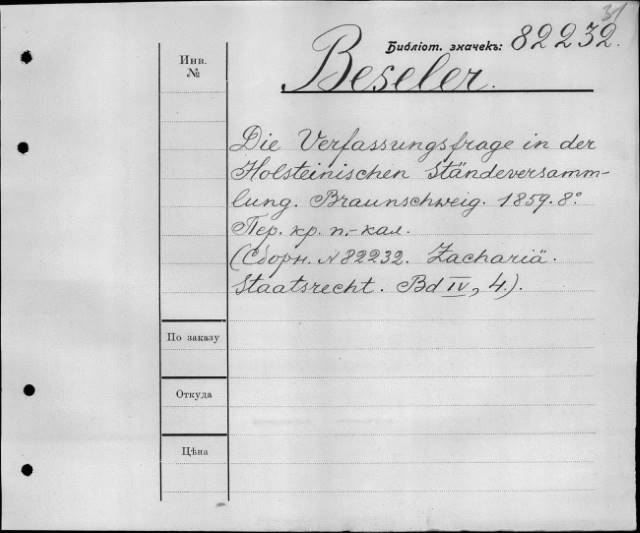 31
Библіот. значекъ: 82232.
Инв. №
Beseler.
Die Verfassungsfrage in der
Holsteinischen Ständeversamm-
lung. Braunschweig. 1859. 8°
Пер. кр. п.-кал.
(Сборн. N 82232. Zachariä.
Staatsrecht. Bd IV, 4.).
По заказу
Откуда
Цѣна